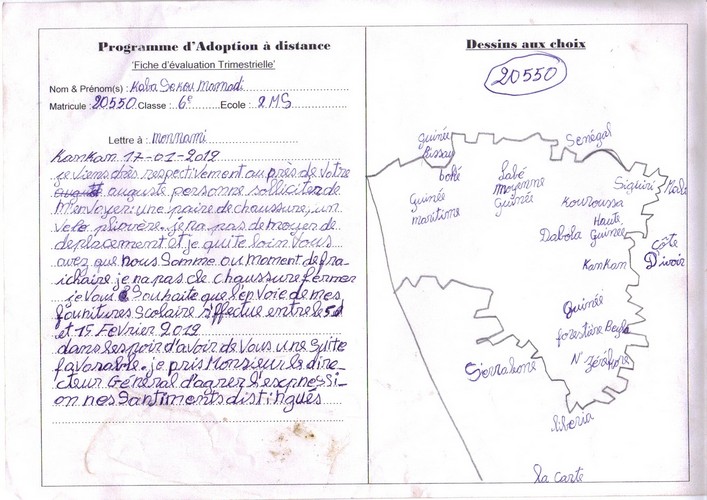 Programme d'Adoption à distance
'Fiche d'évaluation Trimestrielle'
Nom & Prénom(s) : Kaba Sekou Mamadi
Matricule 20550 Classe : 6e Ecole : 2 MS
Lettre à : monnami
Kankan 17-01-2012
je viens très respectivement au près de votre
auguste personne solliciter de
m'envoyer: une paire de chaussure, un
velo pliovère. je na pas de moyer de
deplacement et je quite loin Vous
avez que nous Somme au moment de fra-
ichaire je na pas de chaussure fermer
je vous Souhaite que l'en Voie de mes
founitures Scolaire s'effectue entre le 5
et 15 Février 2012
dans lespoir d'avoir de Vous une Suite
favorable. je pris Monsieur le dire-
cteur Général d'agrer l'esxpressi-
on nos Santiments distingués
Dessins aux choix
20550
Guinée
Bissau
Senégal
boké
Labé
moyenne
Guinée
Siguiri
Mali
Guinée
maritime
Kouroussa
Haute
Guinée
Dabola
côte
Divoir
Kankan
Guinée
forestière Beyla
N'Zérékore
Sierralone
liberia
la carte